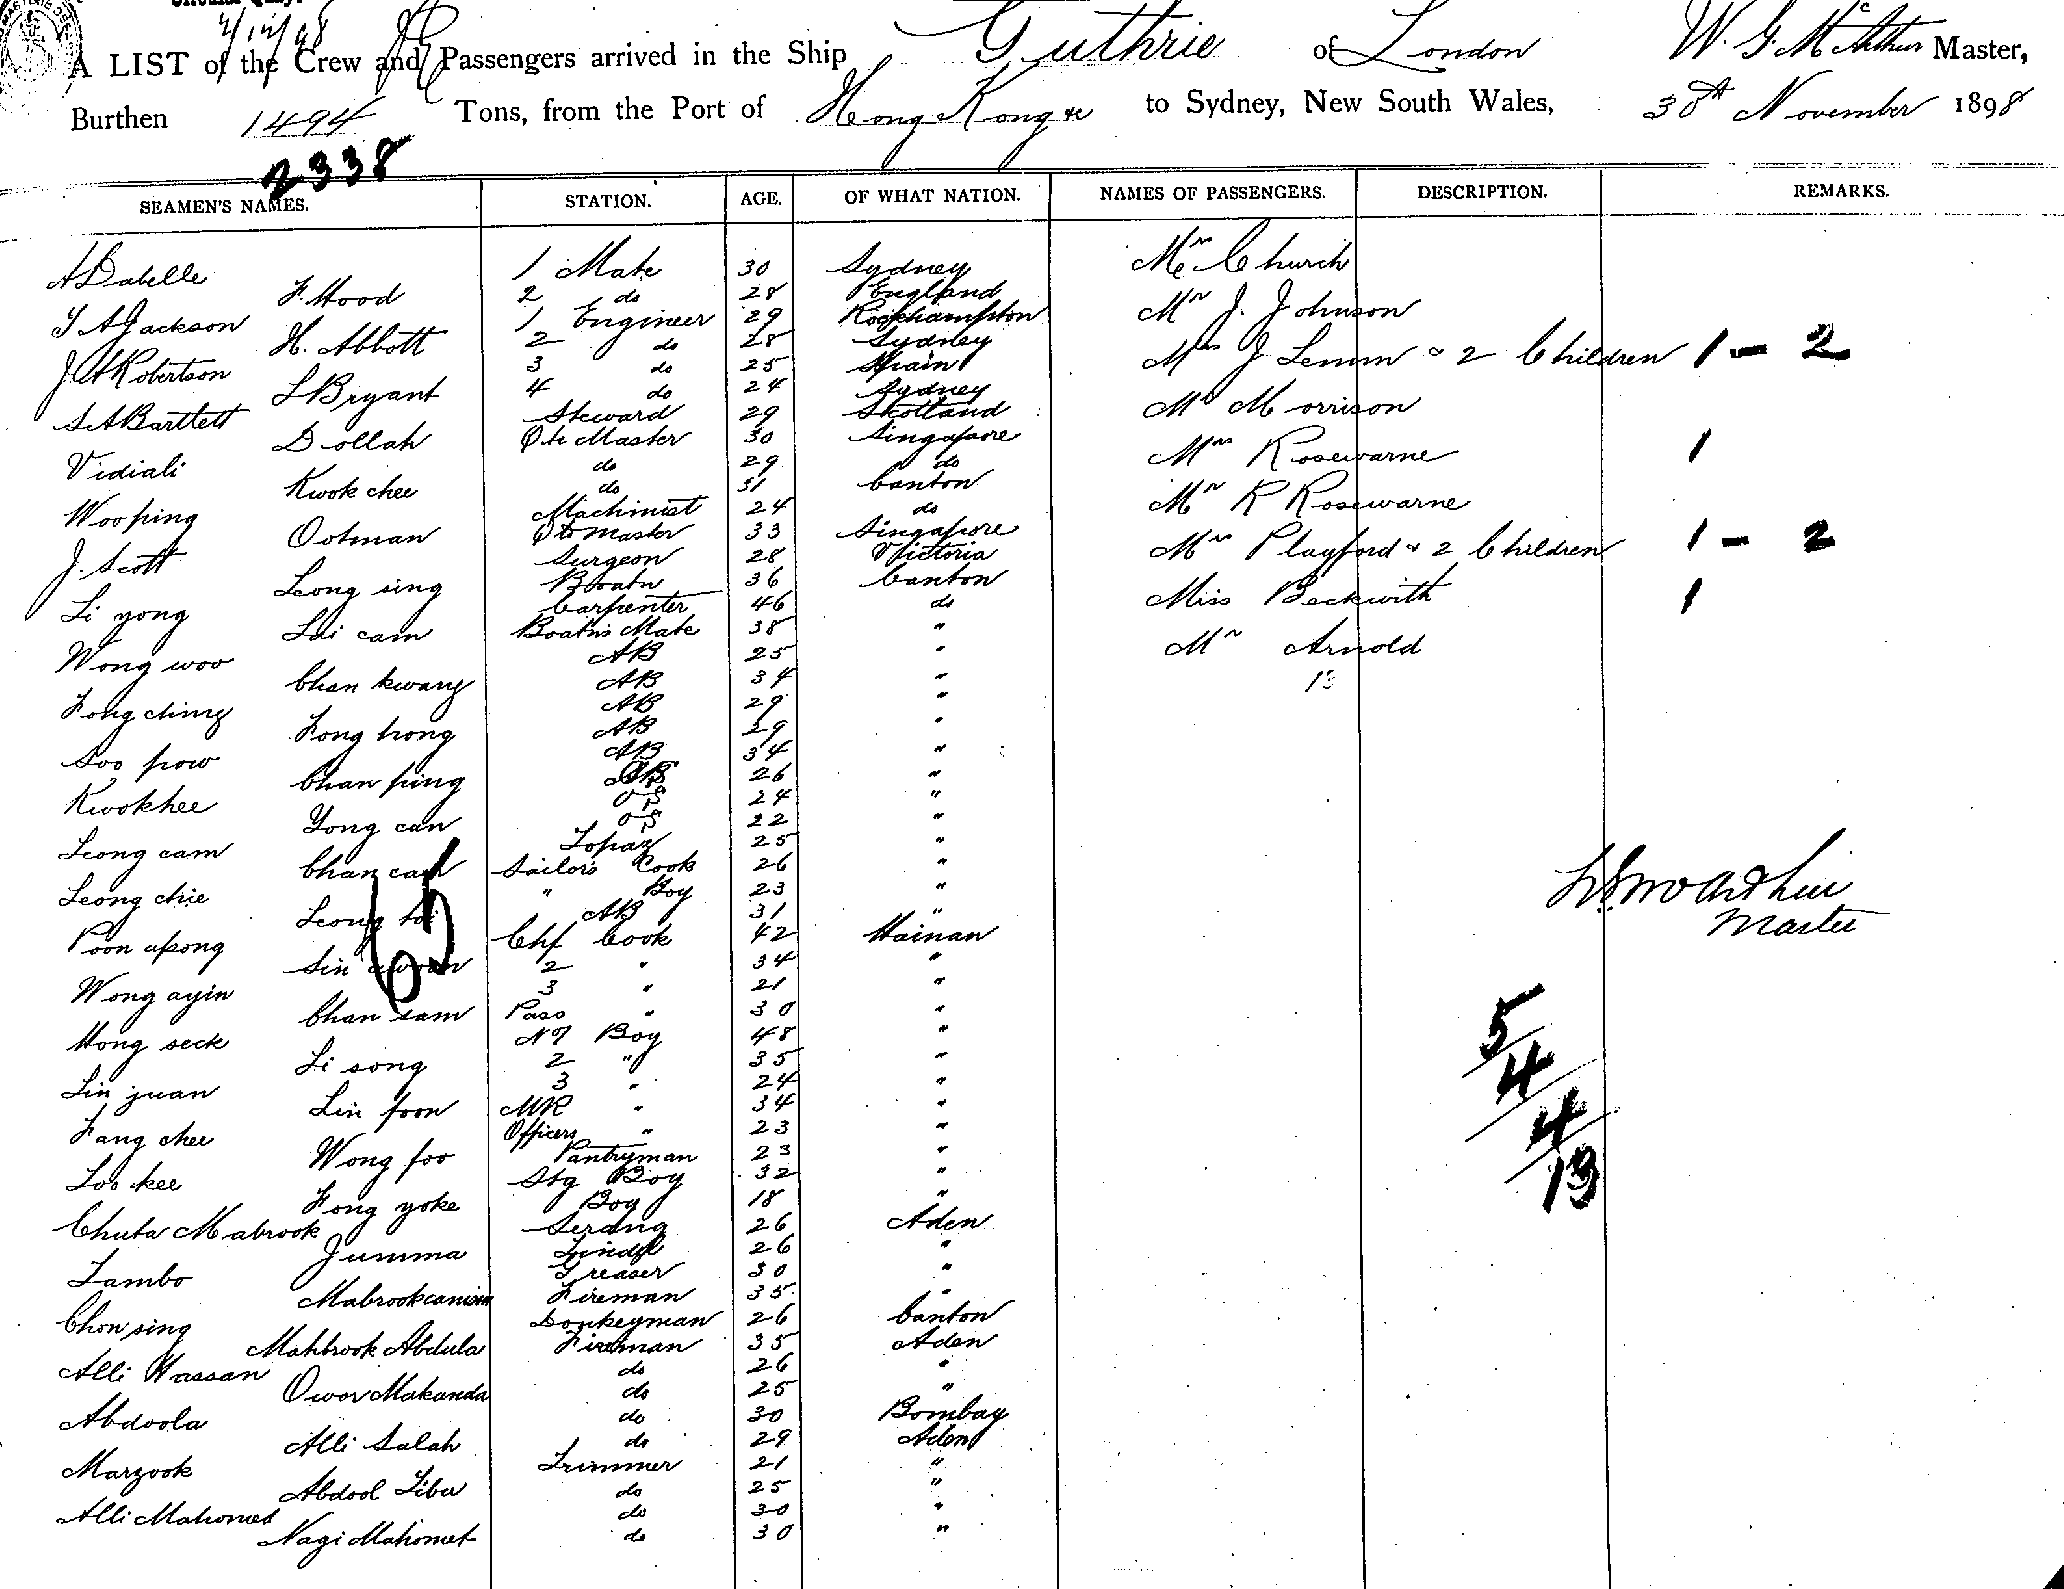 Circular Quay.
2/12/98
A LIST of the Crew and Passengers arrived in the Ship Guthrie of London W. G. McArthur Master,
Burthen 1494 Tons, from the Port of Hong Kong &c to Sydney, New South Wales, 30th November 1898
2338
SEAMEN'S NAMES. STATION. AGE. OF WHAT NATION. NAMES OF PASSENGERS. DESCRIPTION. REMARKS.
A Dalelle 1 Mate 30 Sydney Mr Church
F. Hood 2 do 28 England Mr J. Johnson
T A Jackson 1 Engineer 29 Rockhampton
H. Abbott 2 do 28 Sydney Mrs J Lemm & 2 Children 1 - 2
J A Robertson 3 do 25 Spain
L Bryant 4 do 24 Sydney Mr Morrison
S A Bartlett Steward 29 Skotland
Dollah Qtr Master 30 Singapore Mrs Rosewarne 1
Vidiali do 29 do
Kwok chee do 31 Canton Mr R Rosewarne
Wooping Machinist 24 do
Ootman Qtr Master 33 Singapore Mrs Playford & 2 Children 1 - 2
J. Scott Surgeon 28 Victoria
Leong sing Boatn 36 Canton Miss Beckwith 1
Li yong Carpenter 46 do
Lai cam Boatns Mate 38 " Mr Arnold
Wong woo AB 25 "
Chan kwang AB 34 " 13
Fong ching AB 29 "
Fong hong AB 29 "
Soo pow AB 34 "
Chan ping AB 26 "
Kwokhee OS 24 "
Yong can OS 22 "
Leong cam Topaz 25 "
Chan can Sailors Cook 26 "
Leong chie " Boy 23 "
Leong AB 31 "
Poon apong Chf Cook 42 Hainan
Sin 2 " 34 "
Wong ayin 3 " 21 "
Chan sam Pass " 30 "
Hong seck No 1 Boy 48 "
Li song 2 " 35 "
Lin juan 3 " 24 "
Lin foon MR " 34 "
Fang chee Officers " 23 "
Wong foo Pantryman 23 "
Loo kee Stg Boy 32 "
Fong yoke Boy 18 "
Chuta Mabrook Serang 26 Aden
Jumma Tindal 26 "
Tambo Greaser 30 "
Mabrookcamisin Fireman 35 "
Chon sing Donkeyman 26 Canton
Mahbrook Abdula Fireman 35 Aden
Alli Hassan do 26 "
Owor Makanda do 25 "
Abdoola do 30 Bombay
Alli Salah do 29 Aden
Marzook Trimmer 21 "
Abdool Liba do 25 "
Alli Mahomet do 30 "
Nagi Mahomet do 30 "
65
W G McArthur
Master
5/
4/
4/
13